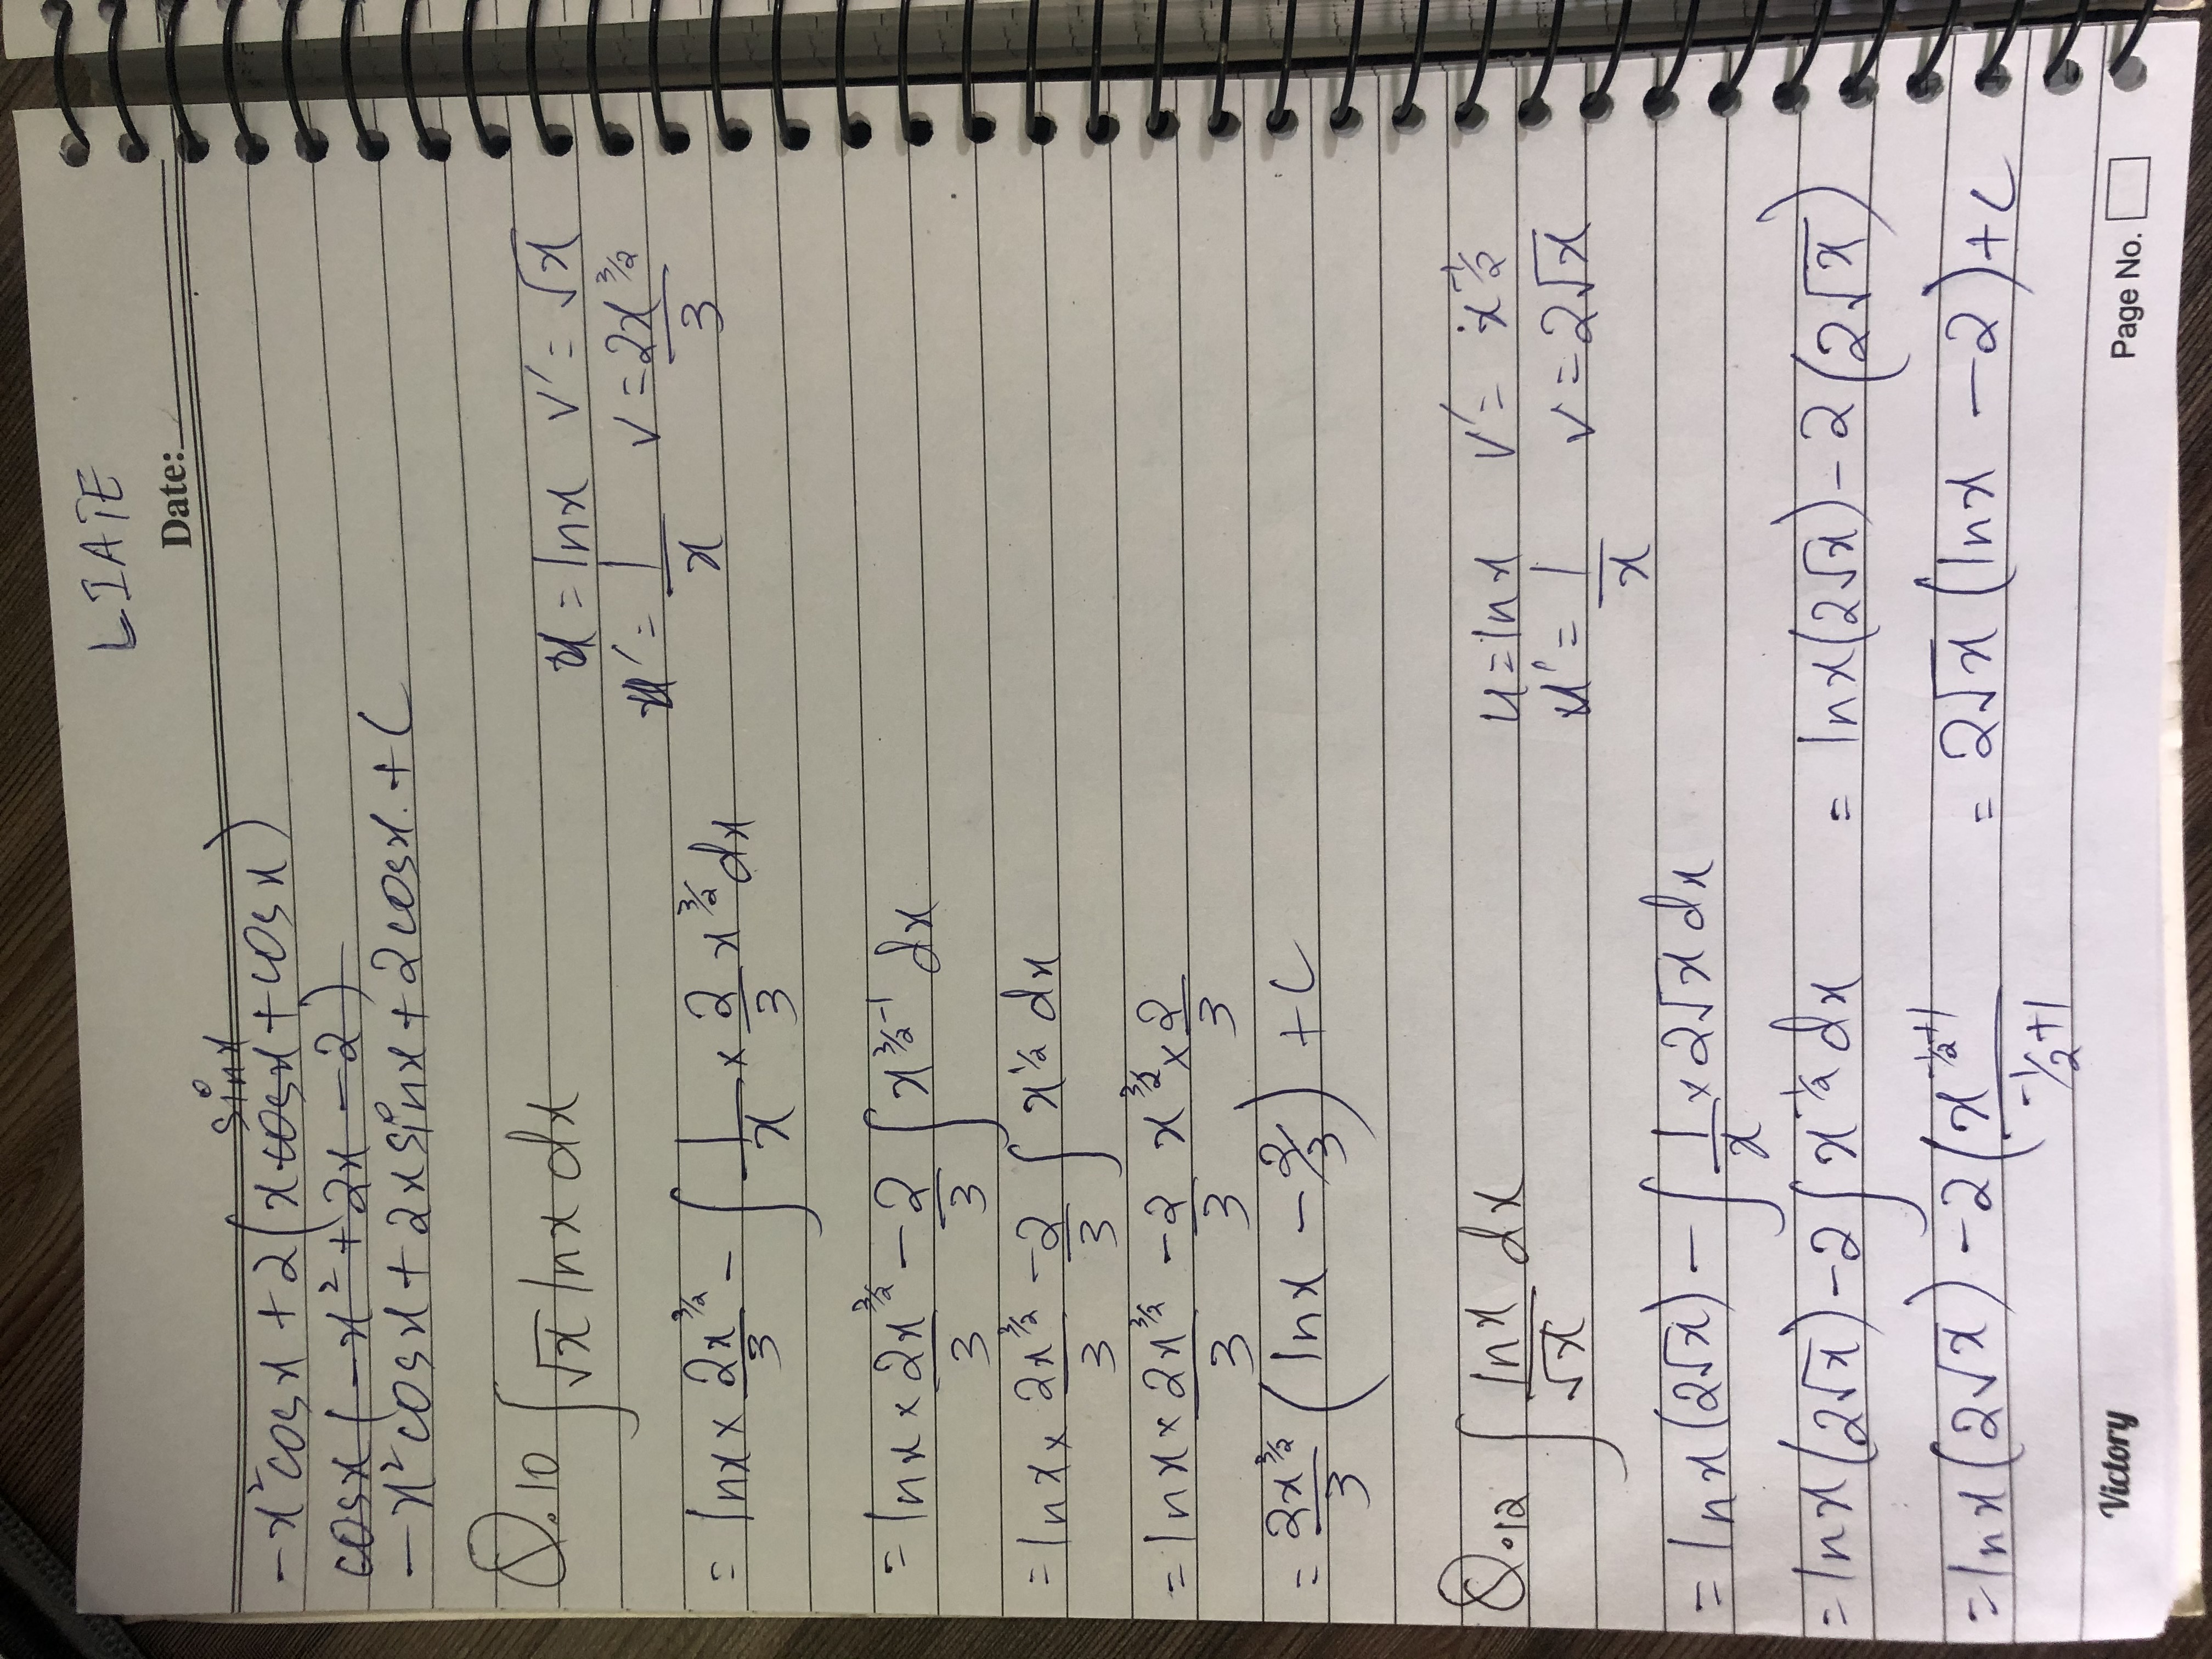 LIATE
Date:
sinx
-x²cosx + 2(x cosx + cosx)
cosx(-x² + 2x - 2)
-x²cosx + 2x sinx + 2cosx. + C
Q.10 ∫√x lnx dx
u = lnx v' = √x
u' = 1/x v = 2x^3/2 / 3
= lnx × 2x^3/2 / 3 - ∫ 1/x × 2/3 x^3/2 dx
= lnx × 2x^3/2 / 3 - 2/3 ∫ x^3/2-1 dx
= lnx × 2x^3/2 / 3 - 2/3 ∫ x^1/2 dx
= lnx × 2x^3/2 / 3 - 2/3 x^3/2 × 2/3
= 2x^3/2 / 3 (lnx - 2/3) + C
Q.12 ∫ lnx/√x dx
u = lnx v' = x^-1/2
u' = 1/x v = 2√x
= lnx(2√x) - ∫ 1/x × 2√x dx
= lnx(2√x) - 2∫ x^-1/2 dx
= lnx(2√x) - 2(x^-1/2+1 / -1/2+1
= lnx(2√x) - 2(2√x)
= 2√x (lnx - 2) + C
Victory
Page No.